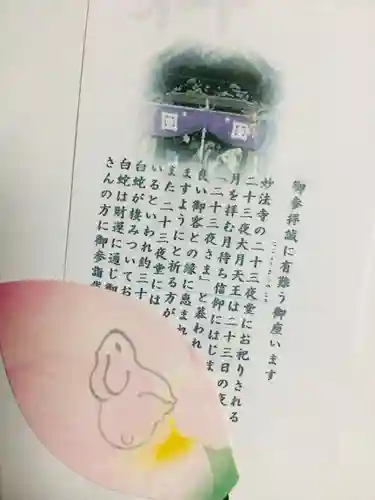 御参拝誠に有難う御座います
妙法寺の二十三夜堂にお祀りされる
二十三夜大月天王は二十三日の夜
月を拝む月待ち信仰にはじま
「二十三夜さま」と慕われ
良い御客との縁に恵まれ
ますようにと祈る方が
また二十三夜堂には
いるといわれ約三十
白蛇が棲みついてお
白蛇は財運に通じ御
さんの方に御参詣